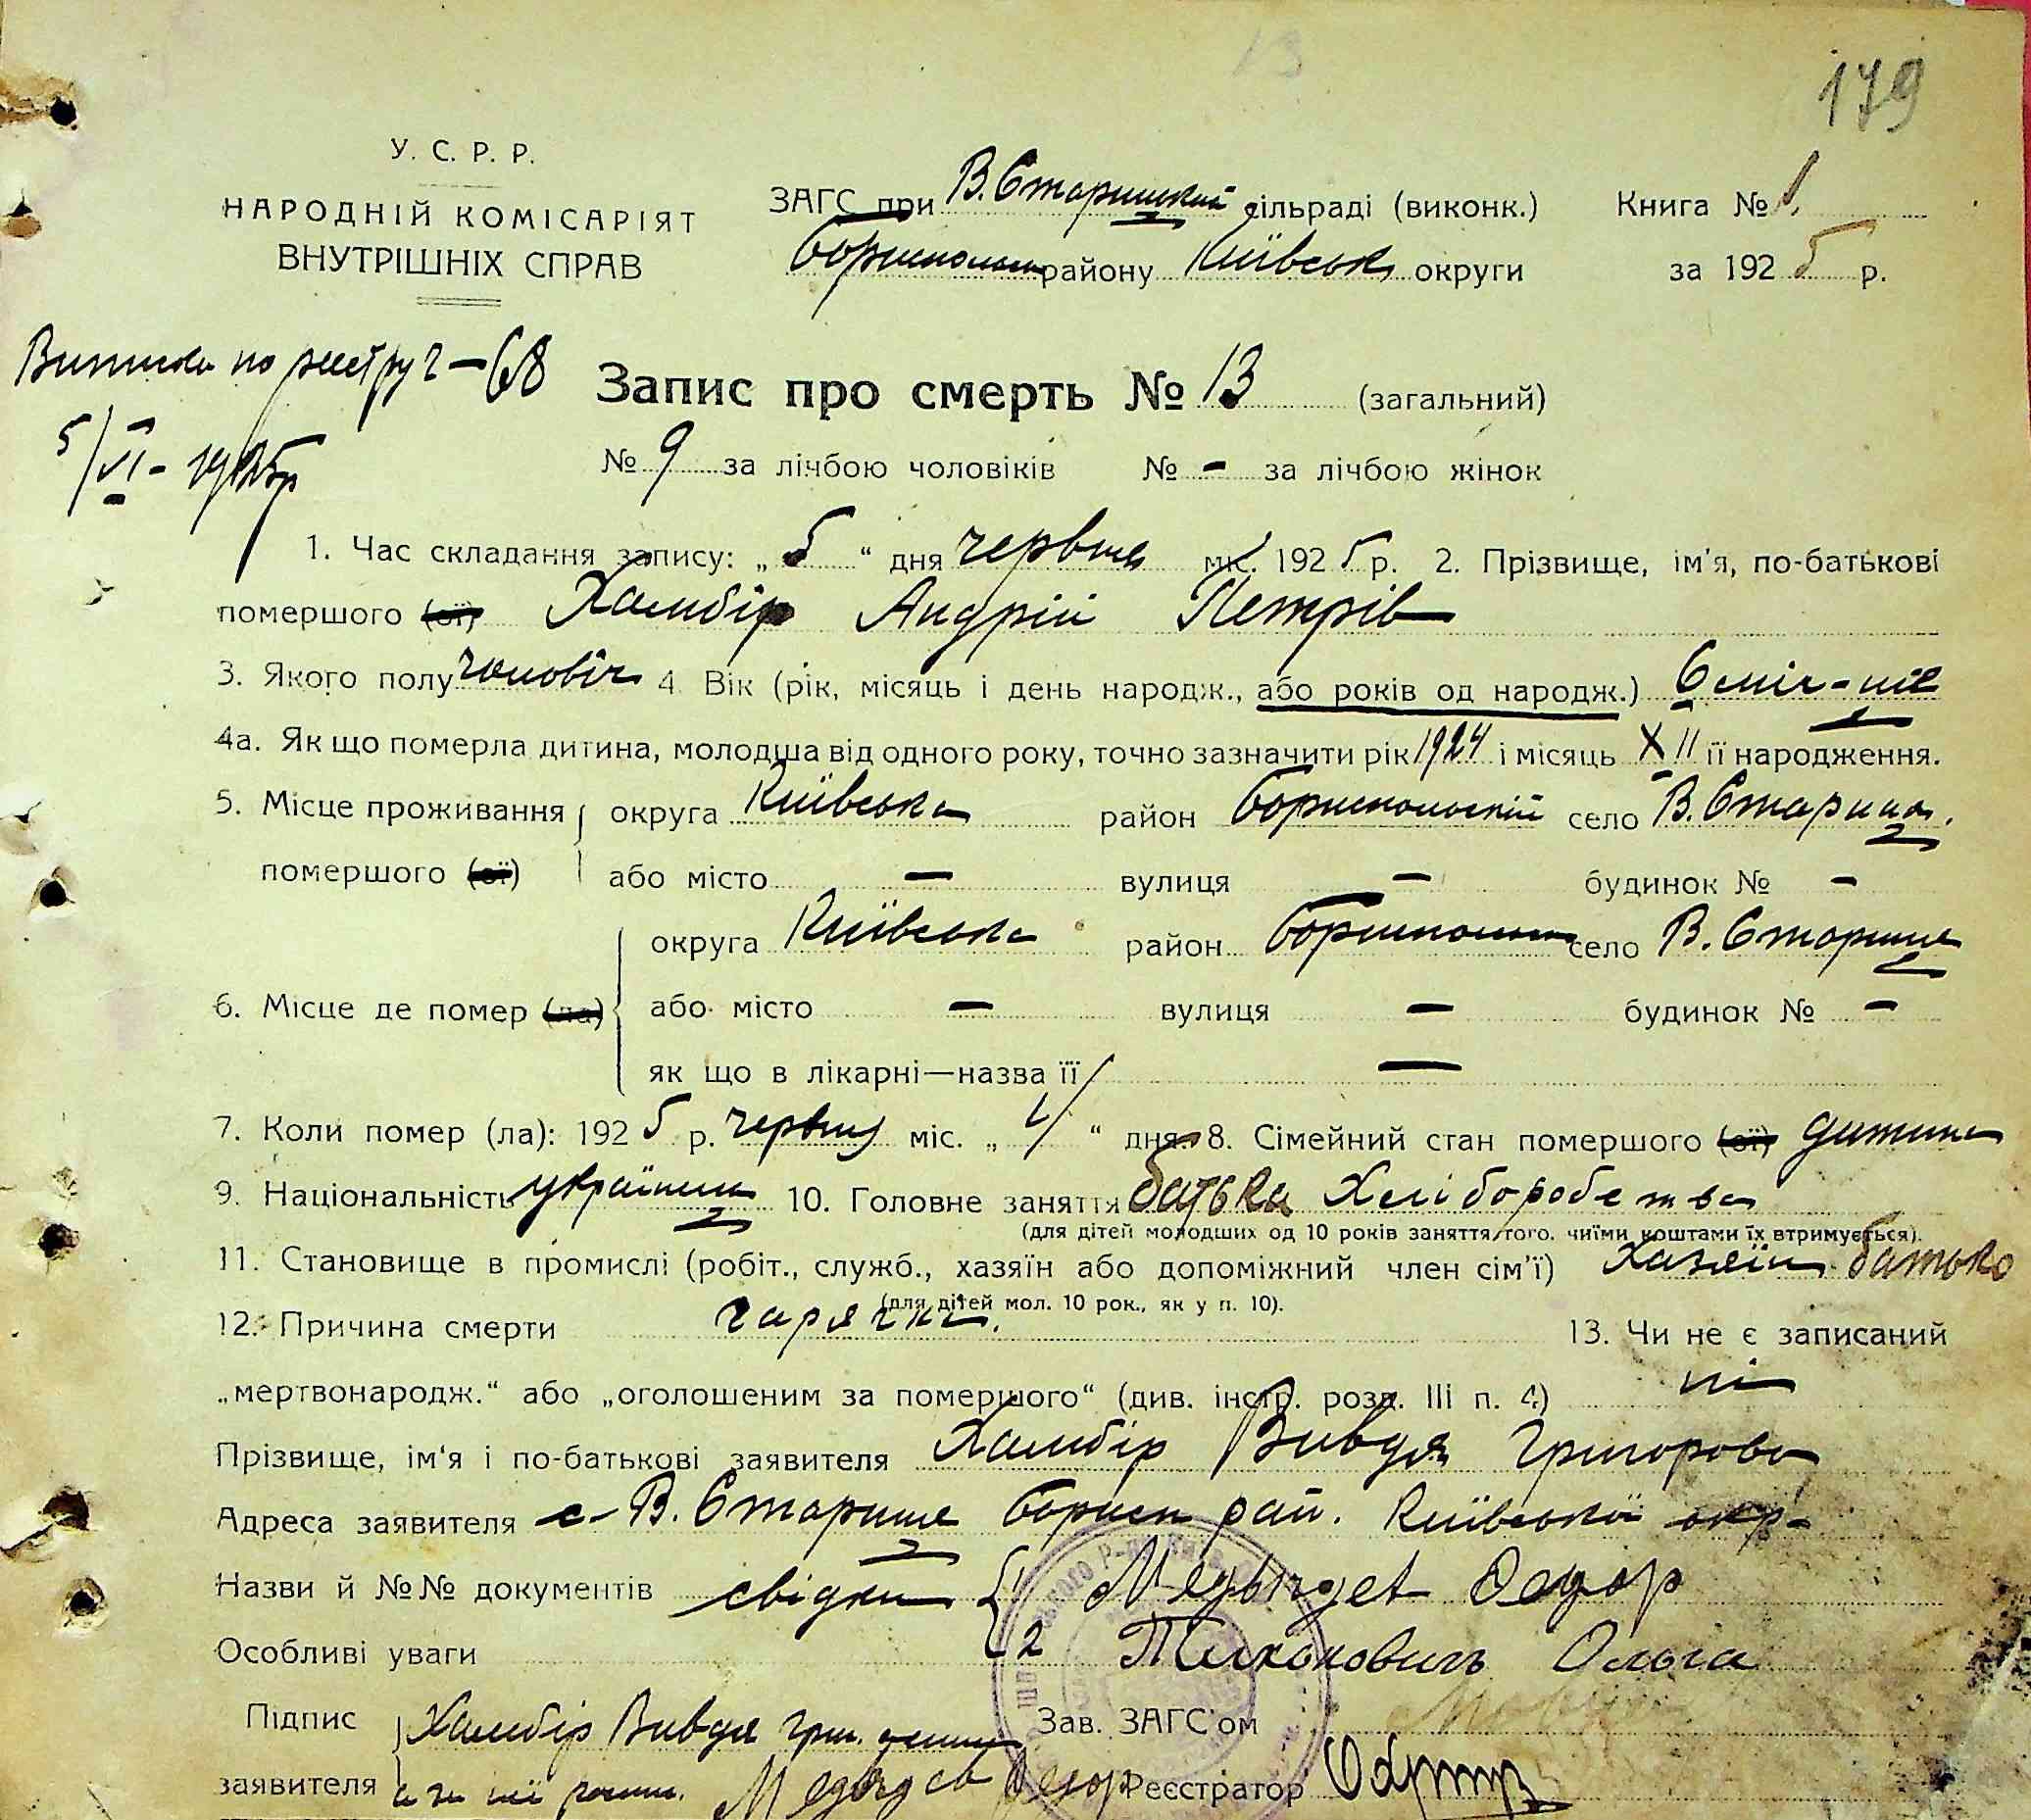 179
У. С. Р. Р.
НАРОДНІЙ КОМІСАРІЯТ
ВНУТРІШНІХ СПРАВ
ЗАГС при В. Старицкій сільраді (виконк.) Книга № 1.
району Київськ округи за 1925 р.
по реєстру 2 – 68
5/VI - 1925 р
Запис про смерть № 13 (загальний)
№ 9 за лічбою чоловіків № - за лічбою жінок
1. Час складання запису: „ 5 “ дня червня міс. 1925 р. 2. Прізвище, ім'я, по-батькові
помершого (ої) Хамбір Андрій Петрів
3. Якого полу чоловіч 4. Вік (рік, місяць і день народж., або років од народж.) 6
4а. Як що померла дитина, молодша від одного року, точно зазначити рік 1924 і місяць XII її народження.
5. Місце проживання округа Київська район Бориспольскій село В. Стариця.
помершого (ої) або місто — вулиця — будинок № -
округа Київська район село В. Стариця
6. Місце де помер (ла) або місто — вулиця — будинок № -
як що в лікарні—назва її —
7. Коли помер (ла): 1925 р. червня міс. „ “ дня. 8. Сімейний стан помершого (ої) дитина
9. Національність українец 10. Головне заняття батька Хліборобства
(для дітей молодших од 10 років заняття того, чиїми коштами їх втримується).
11. Становище в промислі (робіт., служб., хазяїн або допоміжний член сім'ї) Хазяїн батько
(для дітей мол. 10 рок., як у п. 10).
12. Причина смерти гарячка. 13. Чи не є записаний
„мертвонародж.“ або „оголошеним за помершого“ (див. інстр. розд. III п. 4) ні
Прізвище, ім'я і по-батькові заявителя Хамбір Вивдя Григорова
Адреса заявителя с. В. Стариця Борисп рай. Київської окр-
Назви й №№ документів свідки { 1 Федор
Особливі уваги 2 Тихонович Ольга
Підпис Хамбір Вивдя Гри. Зав. ЗАГС'ом
заявителя Федор Реєстратор